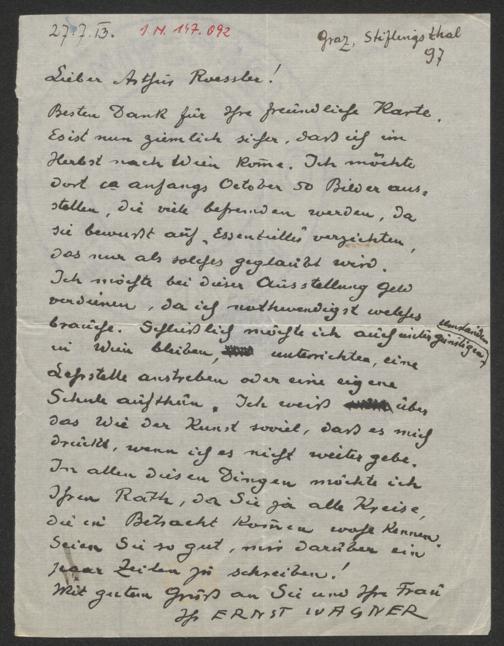 27.7.13.
I.N. 147.092
Graz, Stiftingsthal
97
Lieber Arthur Roessler!
Besten Dank für Ihre freundliche Karte.
Es ist nun ziemlich sicher, daß ich im
Herbst nach Wien kom̄e. Ich möchte
dort ca anfangs October 50 Bilder aus=
stellen, die viele befremden werden, da
sie bewußt auf „Essentielles" verzichten,
das nur als solches geglaubt wird.
Ich möchte bei dieser Ausstellung Geld
verdienen, da ich nothwendigst welches
brauche. Schließlich möchte ich auch unter günstigen Umständen
in Wien bleiben, unterrichten, eine
Lehrstelle anstreben oder eine eigene
Schule aufthun. Ich weiß über
das Wie der Kunst soviel, daß es mich
drückt, wenn ich es nicht weitergebe.
In allen diesen Dingen möchte ich
Ihren Rath, da Sie ja alle Kreise,
die in Betracht kom̄en wohl kennen.
Seien Sie so gut, mir darüber ein
paar Zeilen zu schreiben!
Mit gutem Gruß an Sie und Ihre Frau
Ihr ERNST WAGNER